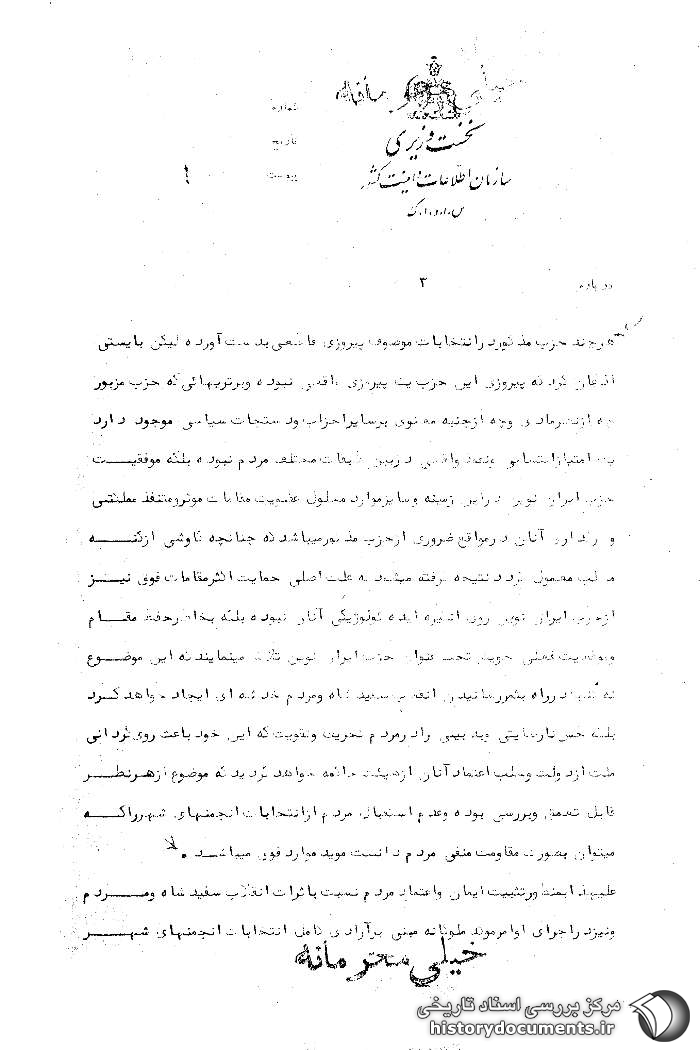 خیلی محرمانه
شماره
تاریخ
پیوست
نخست وزیری
سازمان اطلاعات و امنیت کشور
س.ا.و.ا.ک
درباره ۳
هرچند حزب مذکور در انتخابات موصوف پیروزی قاطعی بدست آورده لیکن بایستی
اذعان کرد که پیروزی این حزب یک پیروزی واقعی نبوده و برتریهائی که حزب مزبور
چه از نظر مادی و چه از جنبه معنوی بر سایر احزاب و دستجات سیاسی موجود دارد
یک امتیاز اجتماعی و نفوذ واقعی در بین طبقات مختلف مردم نبوده بلکه موفقیت
حزب ایران نوین در این زمینه و سایر موارد معلول عضویت مقامات موثر و متنفذ مملکتی
و آنان در مواقع ضروری از حزب مذکور میباشد که چنانچه کاوشی از کلیه
مطالب معمول گردد نتیجه گرفته میشود که علت اصلی حمایت اکثر مقامات فوق نیز
از حزب ایران نوین روی انگیزه ایده ئولوژیکی آنان نبوده بلکه بخاطر حفظ مقام
و موقعیت فعلی خویش تحت عنوان حزب ایران نوین تلاش مینمایند که این موضوع
نه تنها در راه بثمر رسانیدن انقلاب سفید شاه و مردم خدشه ای ایجاد خواهد کرد
بلکه حس نارضایتی و بدبینی را در مردم تحریک و تقویت که این خود باعث روی گردانی
ملت از دولت و سلب اعتماد آنان از هیئت حاکمه خواهد گردید که موضوع از هر نظر
قابل تعمق و بررسی بوده و عدم استقبال مردم از انتخابات انجمنهای شهر را که
میتوان بصورت مقاومت منفی مردم دانست موید موارد فوق میباشد.
علیهذا بمنظور تثبیت ایمان و اعتماد مردم نسبت باثرات انقلاب سفید شاه و مردم
و نیز در اجرای اوامر ملوکانه مبنی بر آزادی کامل انتخابات انجمنهای شهر
خیلی محرمانه
مرکز بررسی اسناد تاریخی
historydocuments.ir